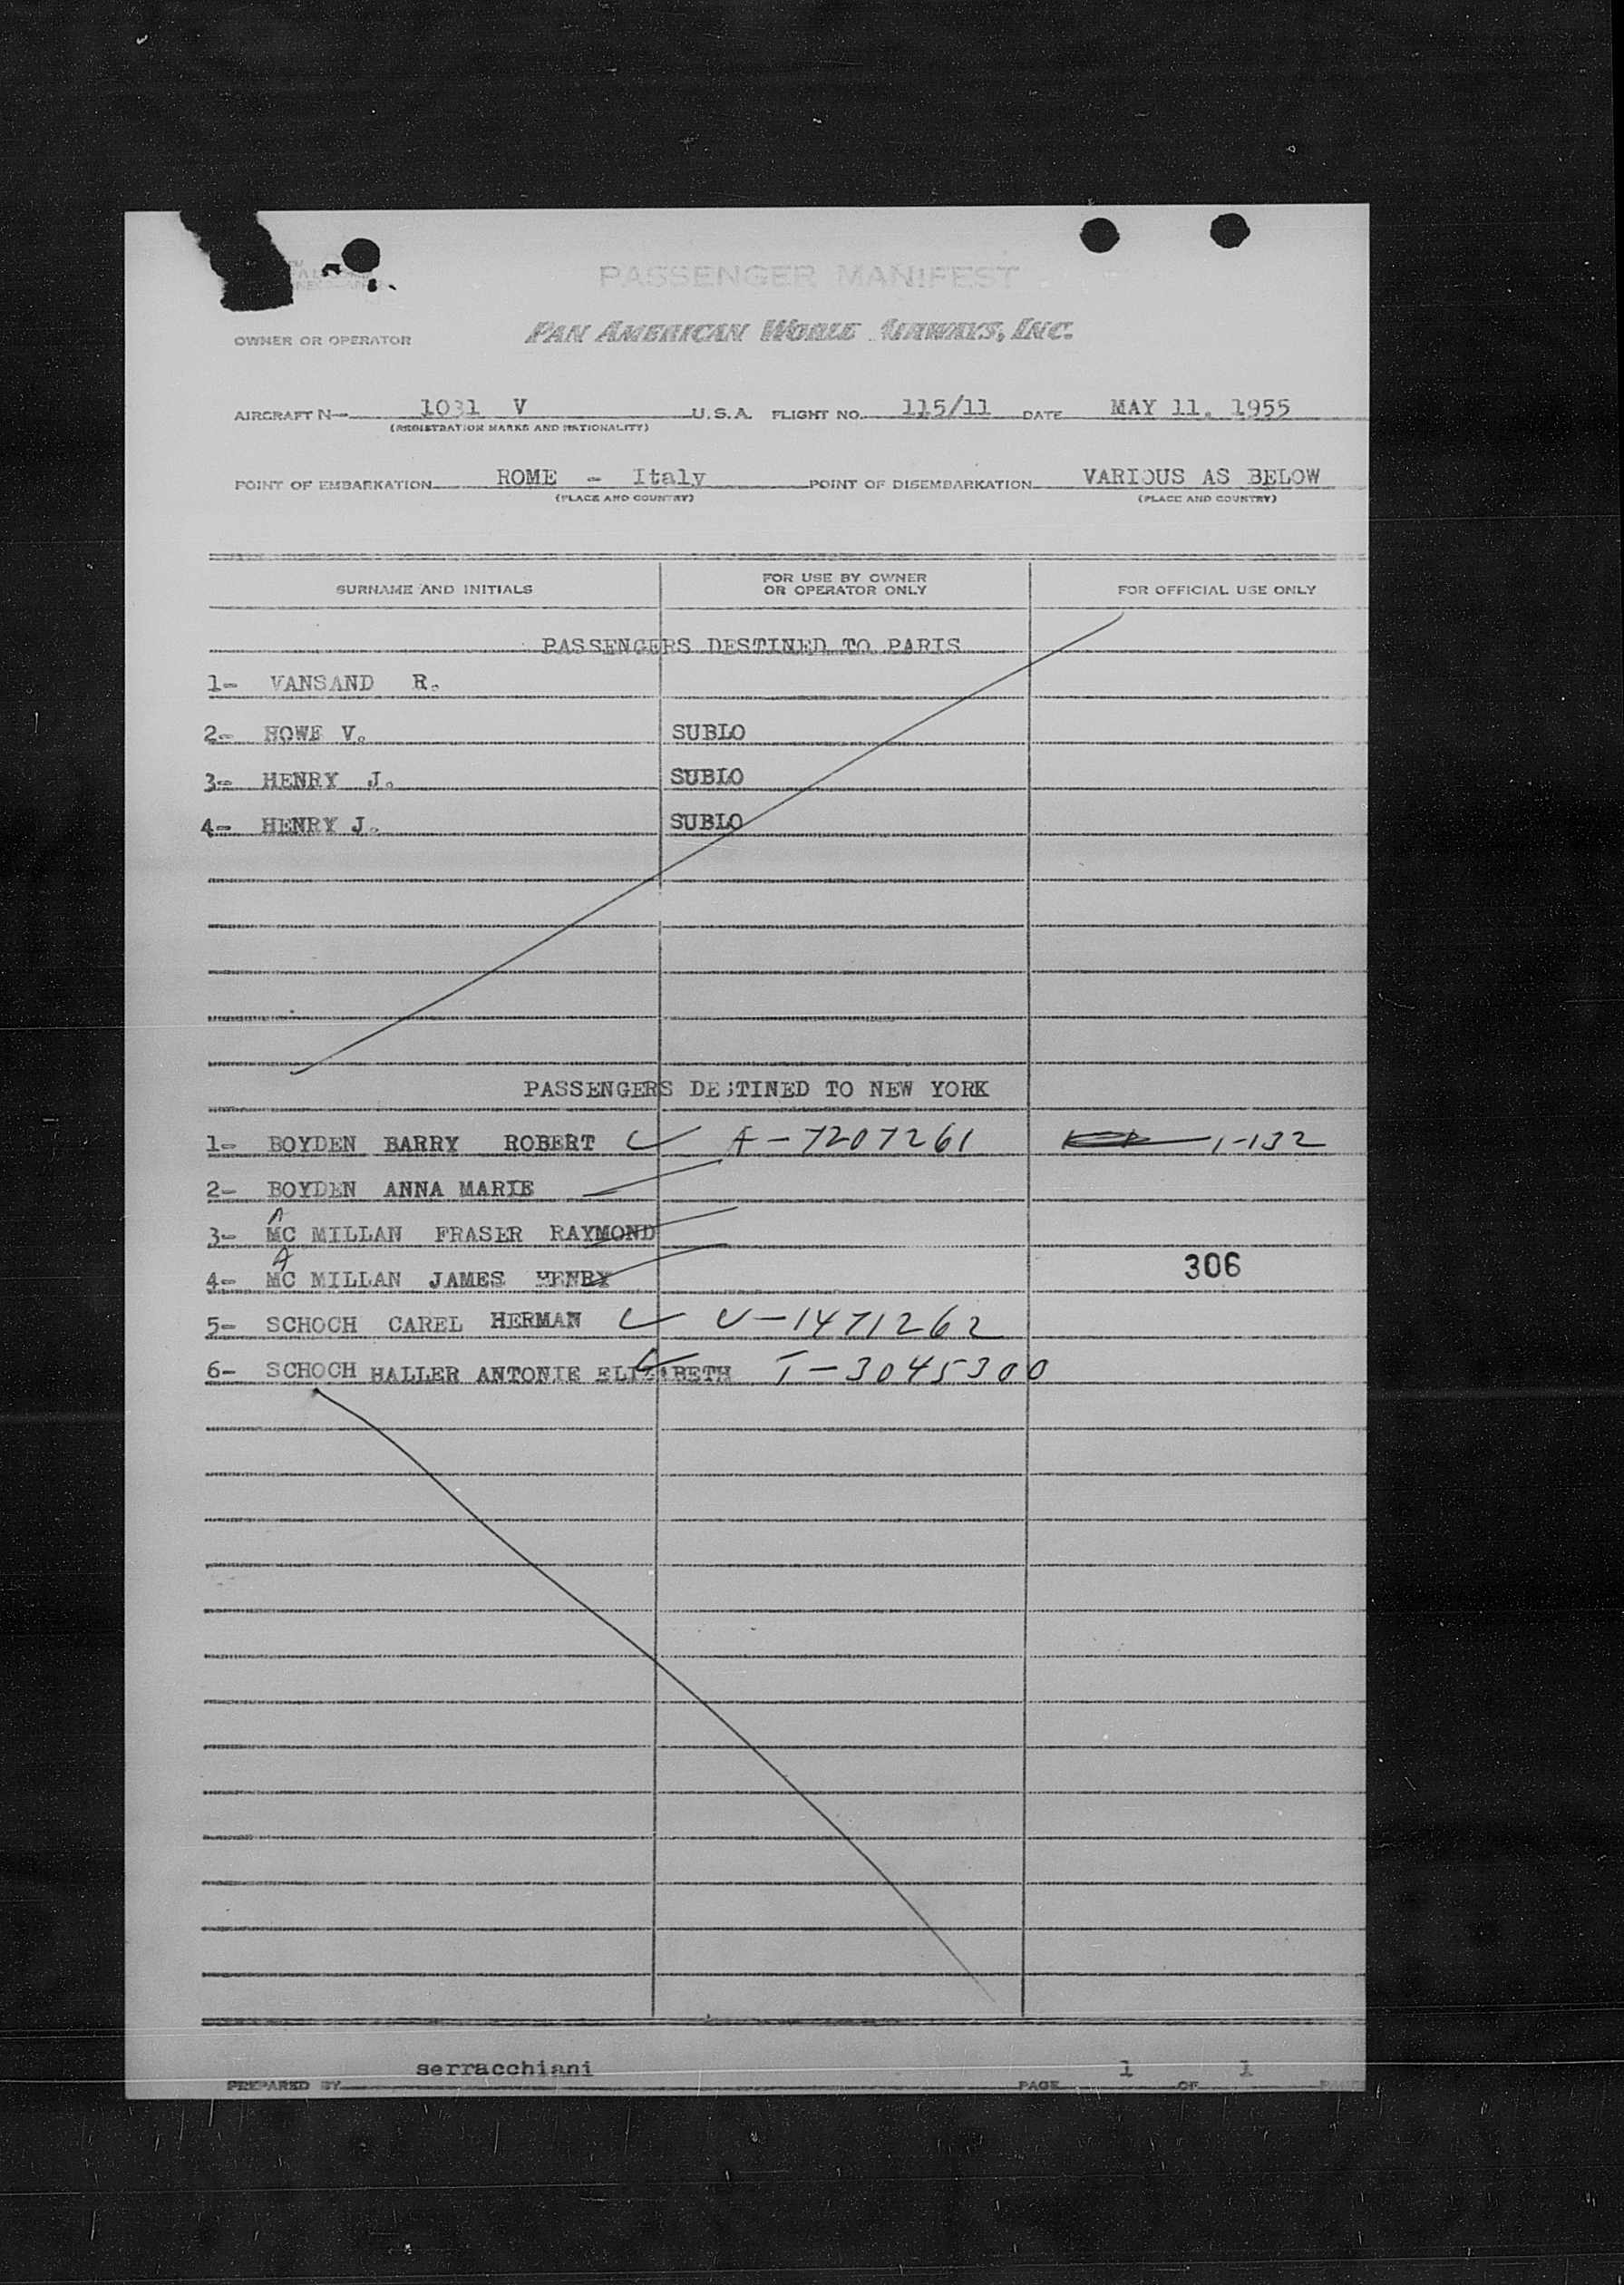 PASSENGER MANIFEST
OWNER OR OPERATOR PAN AMERICAN WORLD AIRWAYS, INC.
AIRCRAFT N- 1031 V U.S.A. FLIGHT NO. 115/11 DATE MAY 11. 1955
(REGISTRATION MARKS AND NATIONALITY)
POINT OF EMBARKATION ROME - Italy POINT OF DISEMBARKATION VARIOUS AS BELOW
(PLACE AND COUNTRY) (PLACE AND COUNTRY)
SURNAME AND INITIALS FOR USE BY OWNER OR OPERATOR ONLY FOR OFFICIAL USE ONLY
PASSENGERS DESTINED TO PARIS
1- VANSAND R.
2- HOWE V. SUBLO
3- HENRY J. SUBLO
4- HENRY J. SUBLO
PASSENGERS DESTINED TO NEW YORK
1- BOYDEN BARRY ROBERT A-7207261 1-132
2- BOYDEN ANNA MARIE
3- MC MILLAN FRASER RAYMOND
4- MC MILLAN JAMES HENRY 306
5- SCHOCH CAREL HERMAN V-1471262
6- SCHOCH HALLER ANTONIE ELIZABETH T-3045300
PREPARED BY serracchiani PAGE 1 OF 1